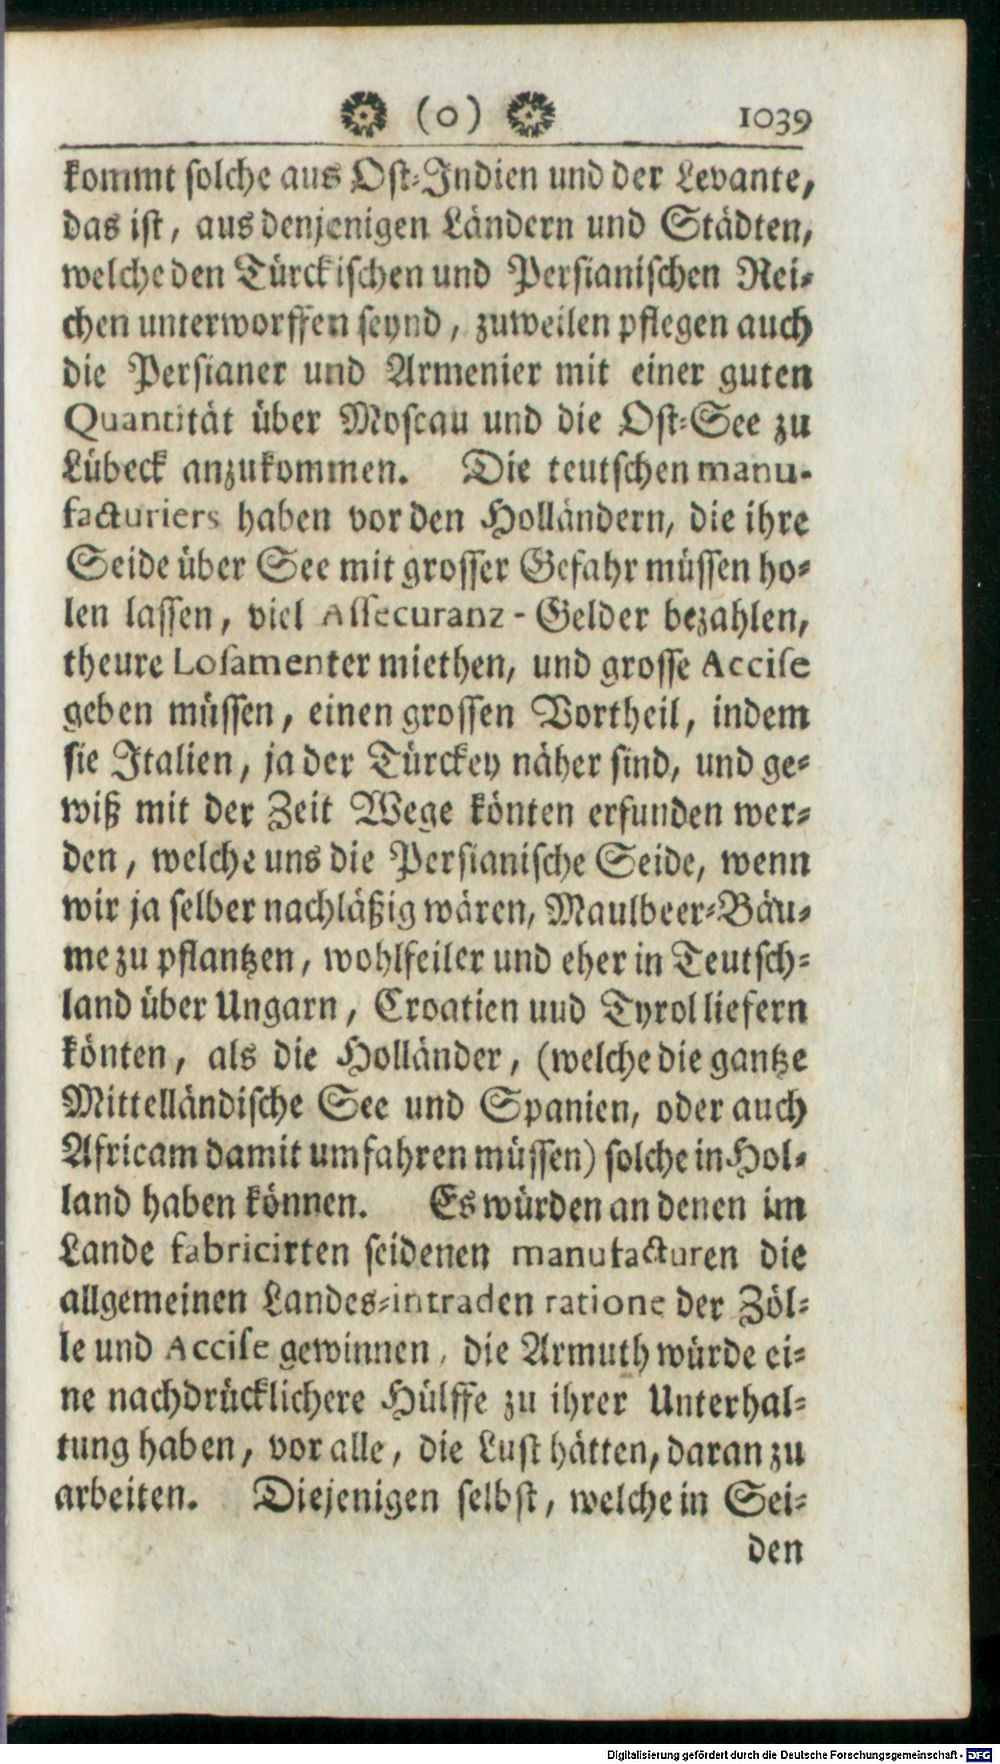 (o) 1039
kommt solche aus Ost-Indien und der Levante,
das ist, aus denjenigen Ländern und Städten,
welche den Türckischen und Persianischen Rei-
chen unterworffen seynd, zuweilen pflegen auch
die Persianer und Armenier mit einer guten
Quantität über Moscau und die Ost-See zu
Lübeck anzukommen. Die teutschen manu-
facturiers haben vor den Holländern, die ihre
Seide über See mit grosser Gefahr müssen ho-
len lassen, viel Assecuranz-Gelder bezahlen,
theure Losamenter miethen, und grosse Accise
geben müssen, einen grossen Vortheil, indem
sie Italien, ja der Türckey näher sind, und ge-
wiß mit der Zeit Wege könten erfunden wer-
den, welche uns die Persianische Seide, wenn
wir ja selber nachläßig wären, Maulbeer-Bäu-
me zu pflantzen, wohlfeiler und eher in Teutsch-
land über Ungarn, Croatien uud Tyrol liefern
könten, als die Holländer, (welche die gantze
Mittelländische See und Spanien, oder auch
Africam damit umfahren müssen) solche in Hol-
land haben können. Es würden an denen im
Lande fabricirten seidenen manufacturen die
allgemeinen Landes-intraden ratione der Zöl-
le und Accise gewinnen, die Armuth würde ei-
ne nachdrücklichere Hülffe zu ihrer Unterhal-
tung haben, vor alle, die Lust hätten, daran zu
arbeiten. Diejenigen selbst, welche in Sei-
den
Digitalisierung gefördert durch die Deutsche Forschungsgemeinschaft - DFG